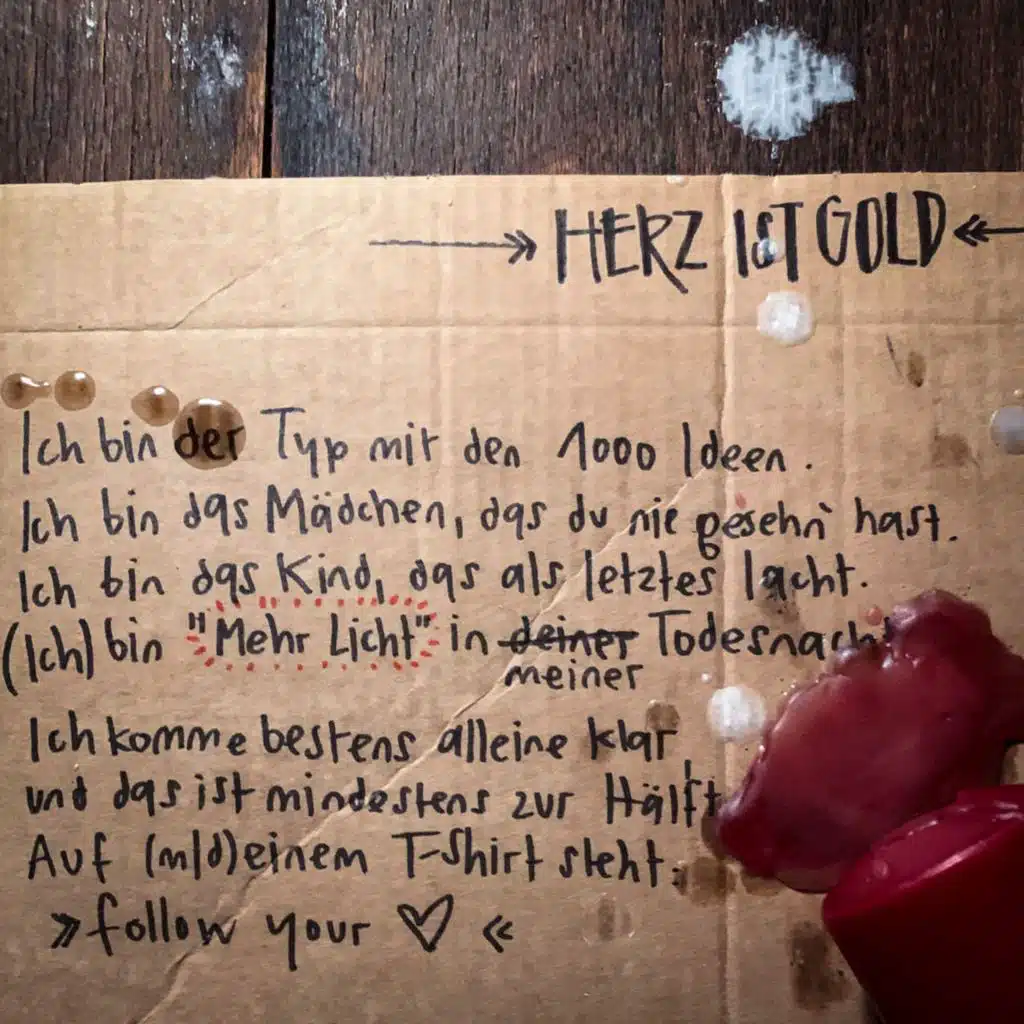 →» HERZ IST GOLD «←
Ich bin der Typ mit den 1000 Ideen.
Ich bin das Mädchen, das du nie gesehn' hast.
Ich bin das Kind, das als letztes lacht.
(Ich) bin "Mehr Licht" in ~~deiner~~ Todesnacht
meiner
Ich komme bestens alleine klar,
und das ist mindestens zur Hälft
Auf (m/d)einem T-Shirt steht:
» follow your ♡ «